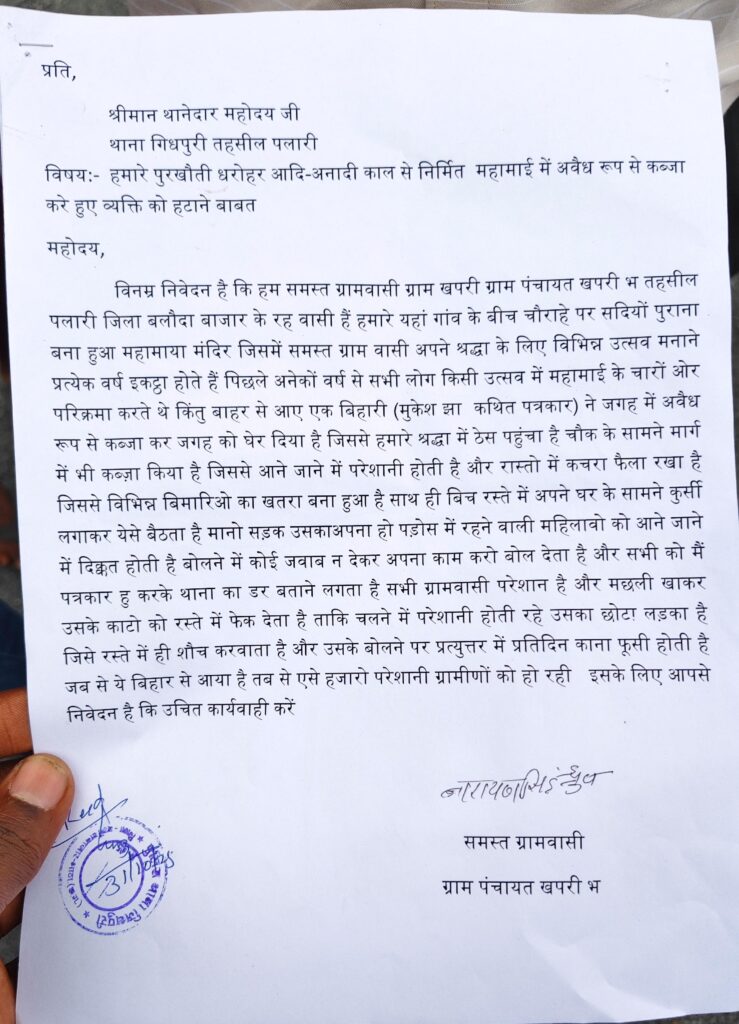 प्रति,
श्रीमान थानेदार महोदय जी
थाना गिधपुरी तहसील पलारी
विषय:- हमारे पुरखौती धरोहर आदि-अनादी काल से निर्मित महामाई में अवैध रूप से कब्जा
करे हुए व्यक्ति को हटाने बाबत
महोदय,
विनम्र निवेदन है कि हम समस्त ग्रामवासी ग्राम खपरी ग्राम पंचायत खपरी भ तहसील
पलारी जिला बलौदा बाजार के रह वासी हैं हमारे यहां गांव के बीच चौराहे पर सदियों पुराना
बना हुआ महामाया मंदिर जिसमें समस्त ग्राम वासी अपने श्रद्धा के लिए विभिन्न उत्सव मनाने
प्रत्येक वर्ष इकट्ठा होते हैं पिछले अनेकों वर्ष से सभी लोग किसी उत्सव में महामाई के चारों ओर
परिक्रमा करते थे किंतु बाहर से आए एक बिहारी (मुकेश झा कथित पत्रकार) ने जगह में अवैध
रूप से कब्जा कर जगह को घेर दिया है जिससे हमारे श्रद्धा में ठेस पहुंचा है चौक के सामने मार्ग
में भी कब्ज़ा किया है जिससे आने जाने में परेशानी होती है और रास्तो में कचरा फैला रखा है
जिससे विभिन्न बिमारिओ का खतरा बना हुआ है साथ ही बिच रस्ते में अपने घर के सामने कुर्सी
लगाकर येसे बैठता है मानो सड़क उसकाअपना हो पड़ोस में रहने वाली महिलावो को आने जाने
में दिक्कत होती है बोलने में कोई जवाब न देकर अपना काम करो बोल देता है और सभी को मैं
पत्रकार हु करके थाना का डर बताने लगता है सभी ग्रामवासी परेशान है और मछली खाकर
उसके काटो को रस्ते में फेक देता है ताकि चलने में परेशानी होती रहे उसका छोटा लड़का है
जिसे रस्ते में ही शौच करवाता है और उसके बोलने पर प्रत्युत्तर में प्रतिदिन काना फूसी होती है
जब से ये बिहार से आया है तब से एसे हजारो परेशानी ग्रामीणों को हो रही इसके लिए आपसे
निवेदन है कि उचित कार्यवाही करें
नारायण सिंह ध्रुव
समस्त ग्रामवासी
ग्राम पंचायत खपरी भ